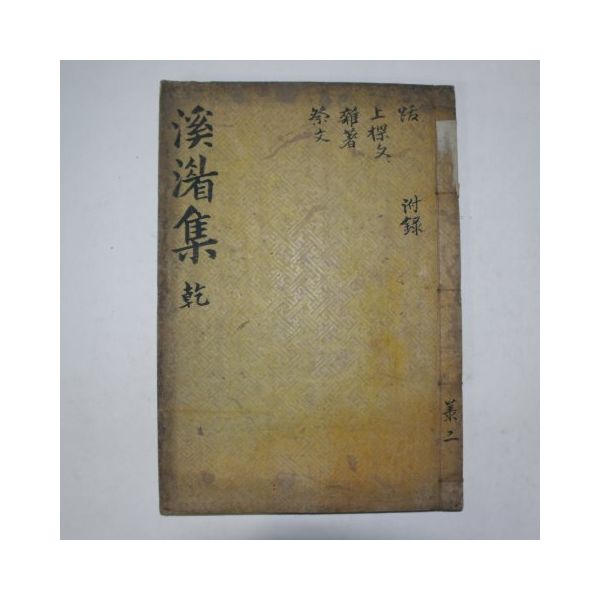 跋
附錄
上樑文
雜著
祭文
溪渚集 乾
共二